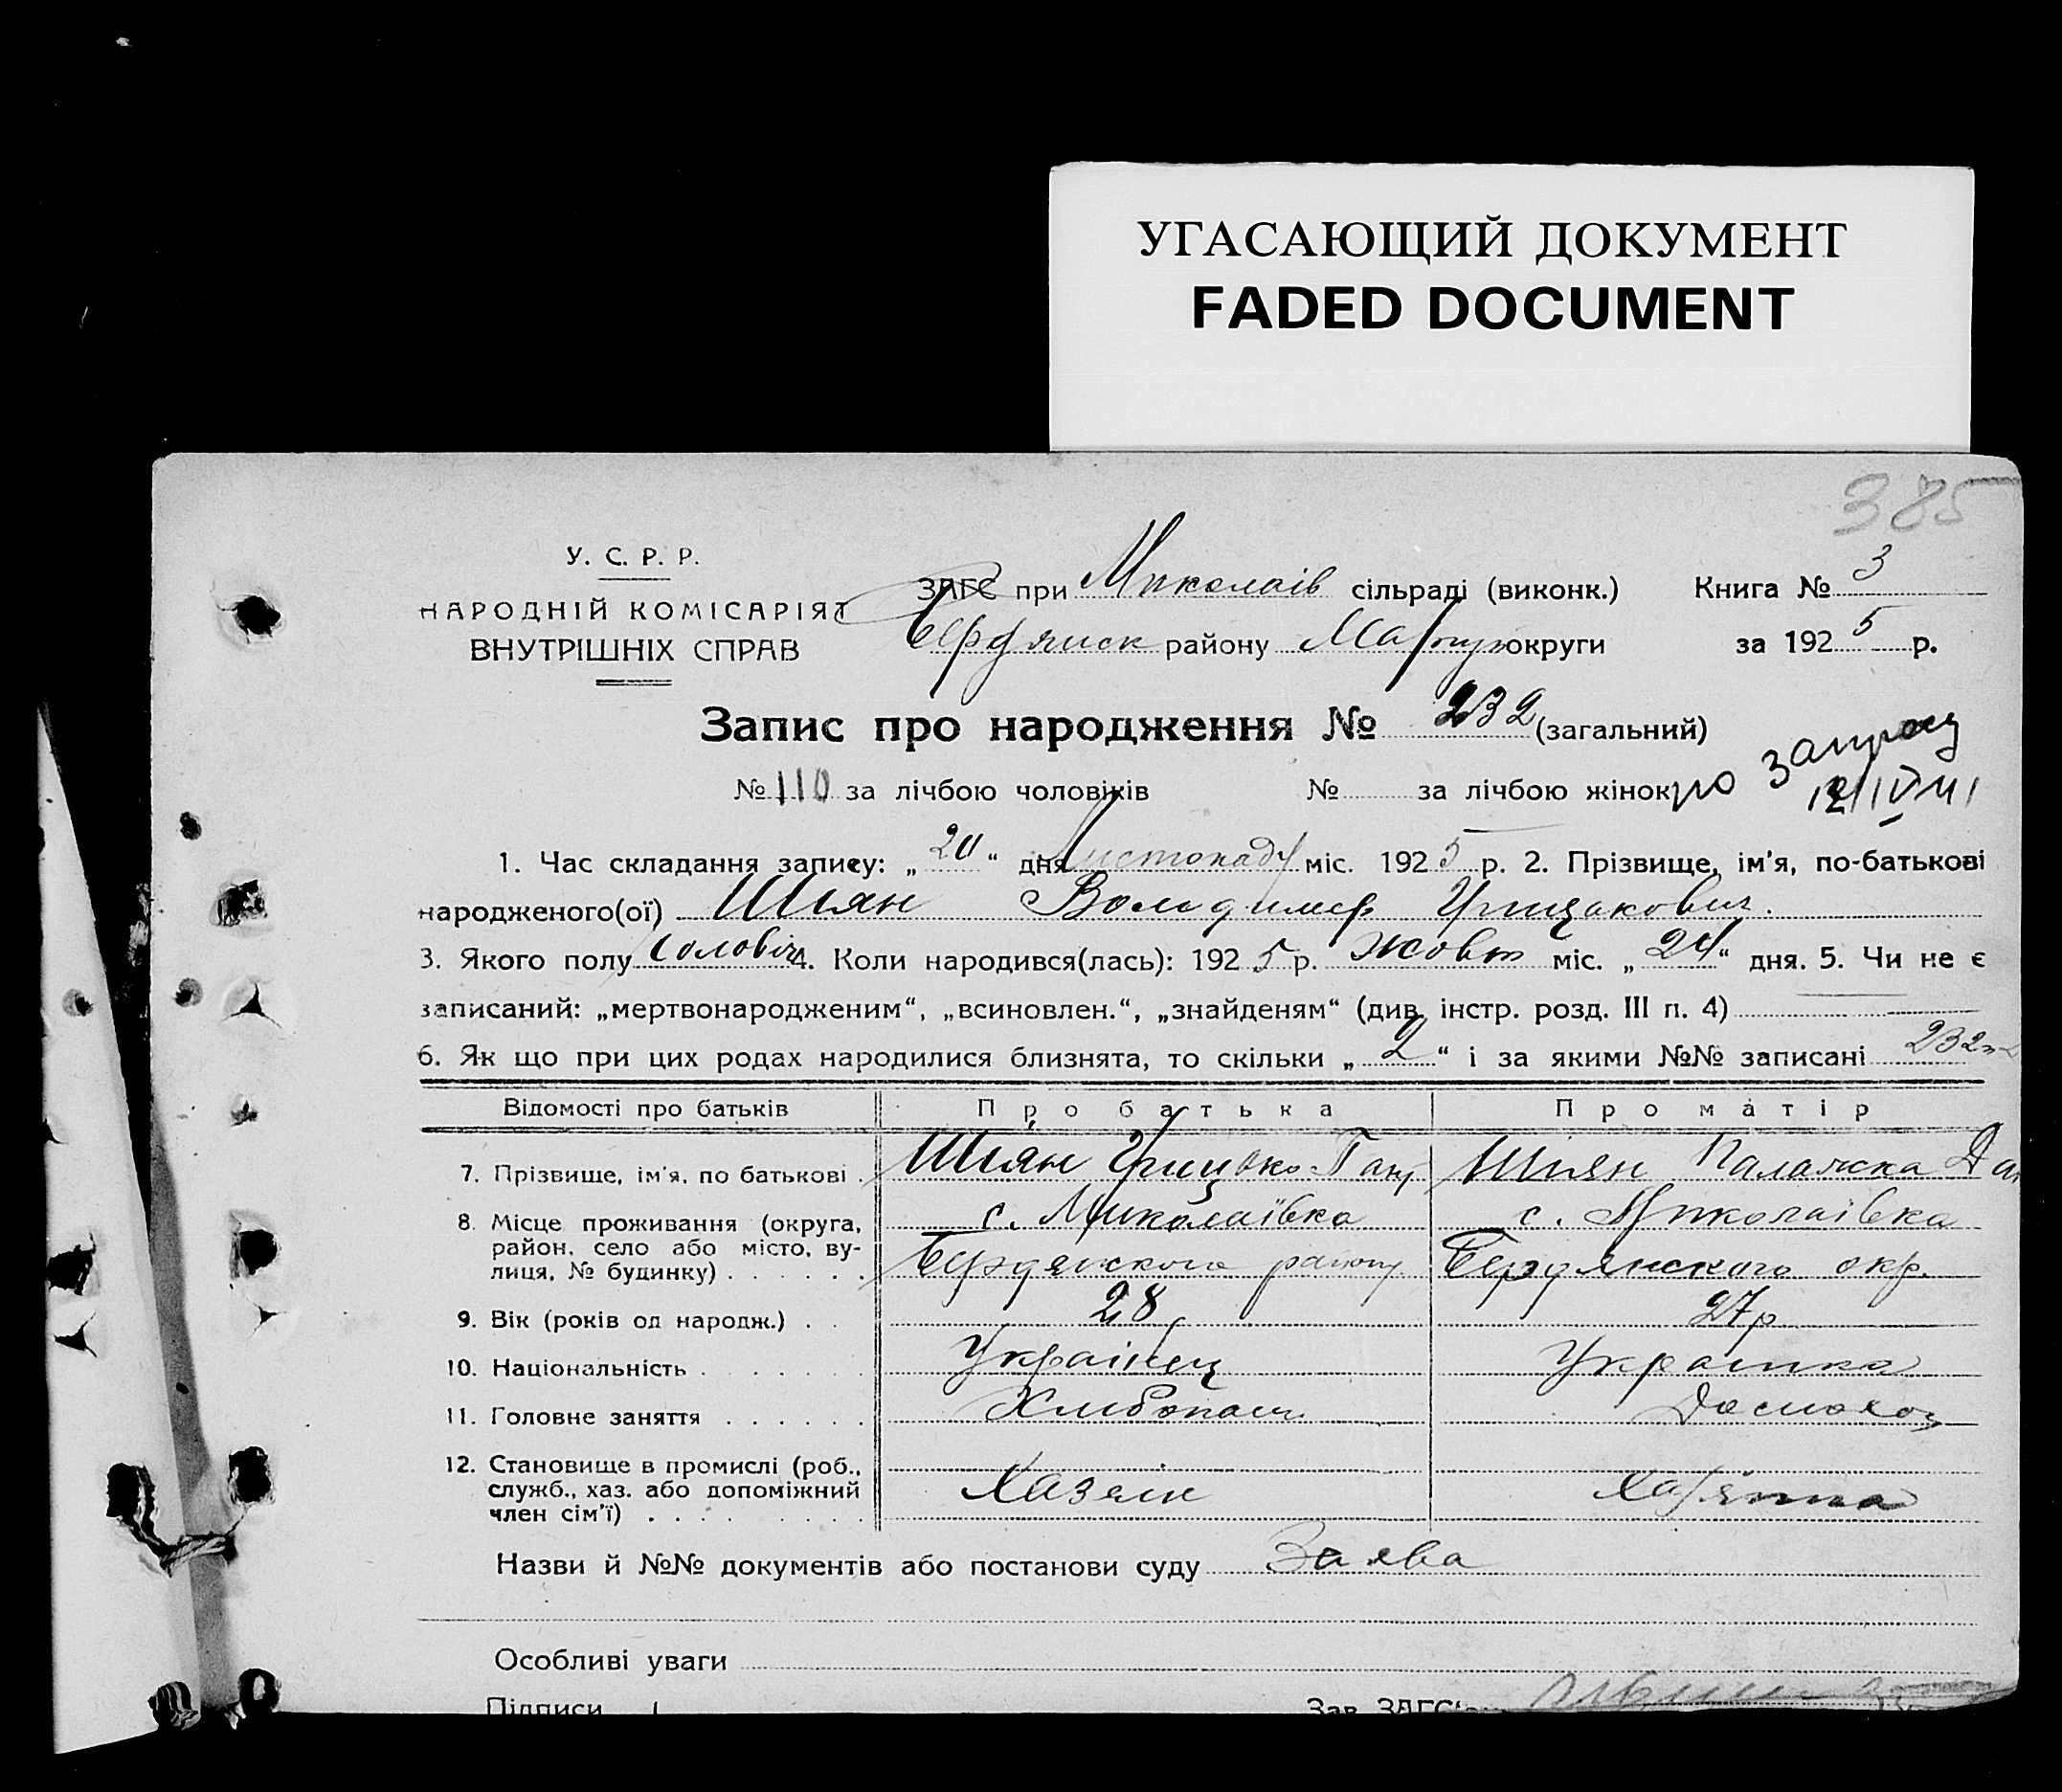 УГАСАЮЩИЙ ДОКУМЕНТ
FADED DOCUMENT
385
У. С. Р. Р.
НАРОДНІЙ КОМІСАРІЯТ
ВНУТРІШНІХ СПРАВ
ЗАГС при Миколаів сільраді (виконк.) Книга № 3
Бердянск району Маріуп округи за 1925 р.
Запис про народження № 232 (загальний)
№ 110 за лічбою чоловіків № за лічбою жінок
1. Час складання запису: „20“ дня Листопаду міс. 1925 р. 2. Прізвище, ім'я, по-батькові
народженого(ої) Шиян Володимер Грицькович.
3. Якого полу чоловіч 4. Коли народився(лась): 1925 р. жовт міс. „24“ дня. 5. Чи не є
записаний: „мертвонародженим“, „всиновлен.“, „знайденям“ (див. інстр. розд. III п. 4)
6. Як що при цих родах народилися близнята, то скільки „2“ і за якими №№ записані 232
Відомості про батьків Про батька Про матір
7. Прізвище, ім'я, по батькові . Шиян Грицько Шиян Палажка
8. Місце проживання (округа, с. Миколаівка с. Миколаівка
район, село або місто, ву-
лиця, № будинку) . . . . . . Бердянского району Бердянского окр.
9. Вік (років од народж.) . . 28 27р
10. Національність . . . . . . . Українец Украинка
11. Головне заняття . . . . . . Хлибопаш Домохоз
12. Становище в промислі (роб.,
служб., хаз. або допоміжний Хазяін Хазяінка
член сім'ї) . . . . . . . .
Назви й №№ документів або постанови суду Заява
Особливі уваги
Підписи Зав. ЗАГС'ом